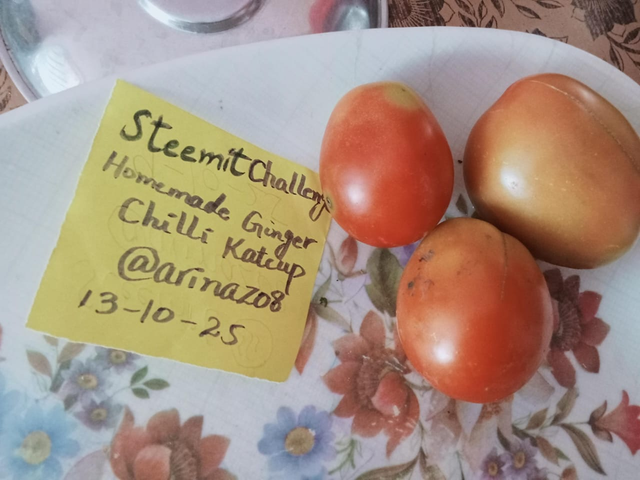 Steemit Challenge
Homemade Ginger
Chilli Katcup
@arinaz08
13-10-25